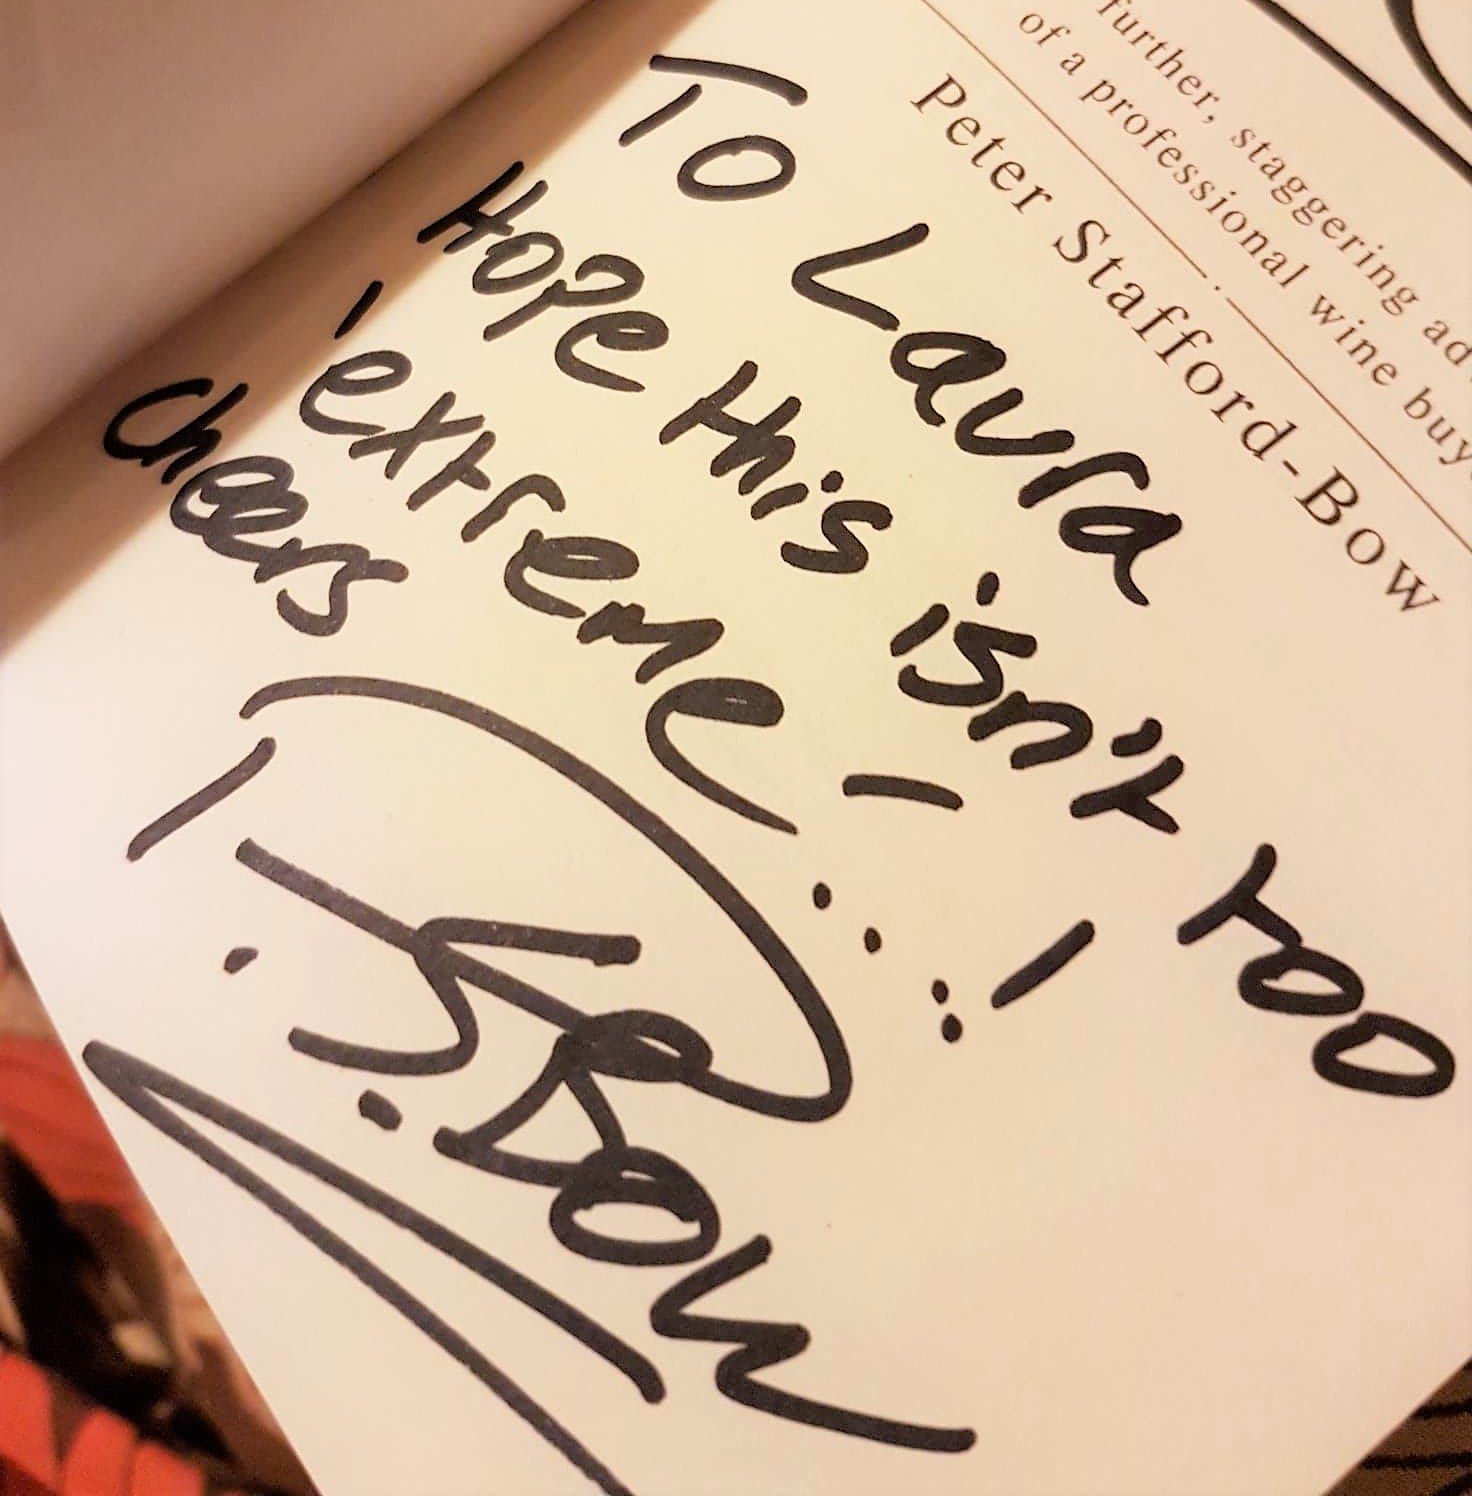 further, staggering
of a professional wine
Peter Stafford-Bow
To Laura
Hope this isn't too
'extreme' - ...!
Cheers
P.S. Bow